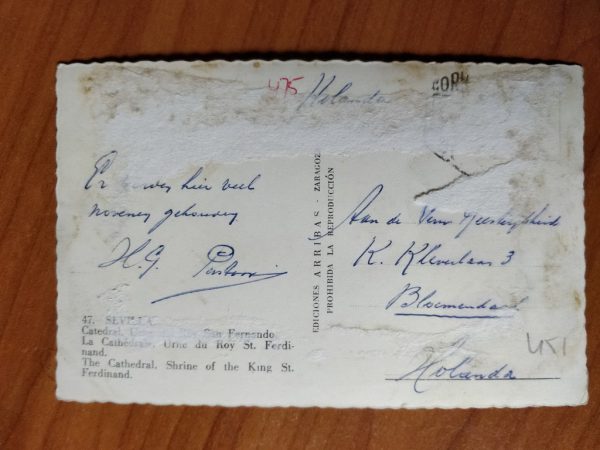 475
Holanda
CORR
Er worden hier veel
novenen gehouden
H.G. Pastoor
47. SEVILLA
Catedral. Urna del Rey San Fernando.
La Cathédrale. Urne du Roy St. Ferdi-
nand.
The Cathedral. Shrine of the King St.
Ferdinand.
EDICIONES ARRIBAS - ZARAGOZA
PROHIBIDA LA REPRODUCCIÓN
Aan de
K. Kleverlaan 3
Bloemendaal
Holanda